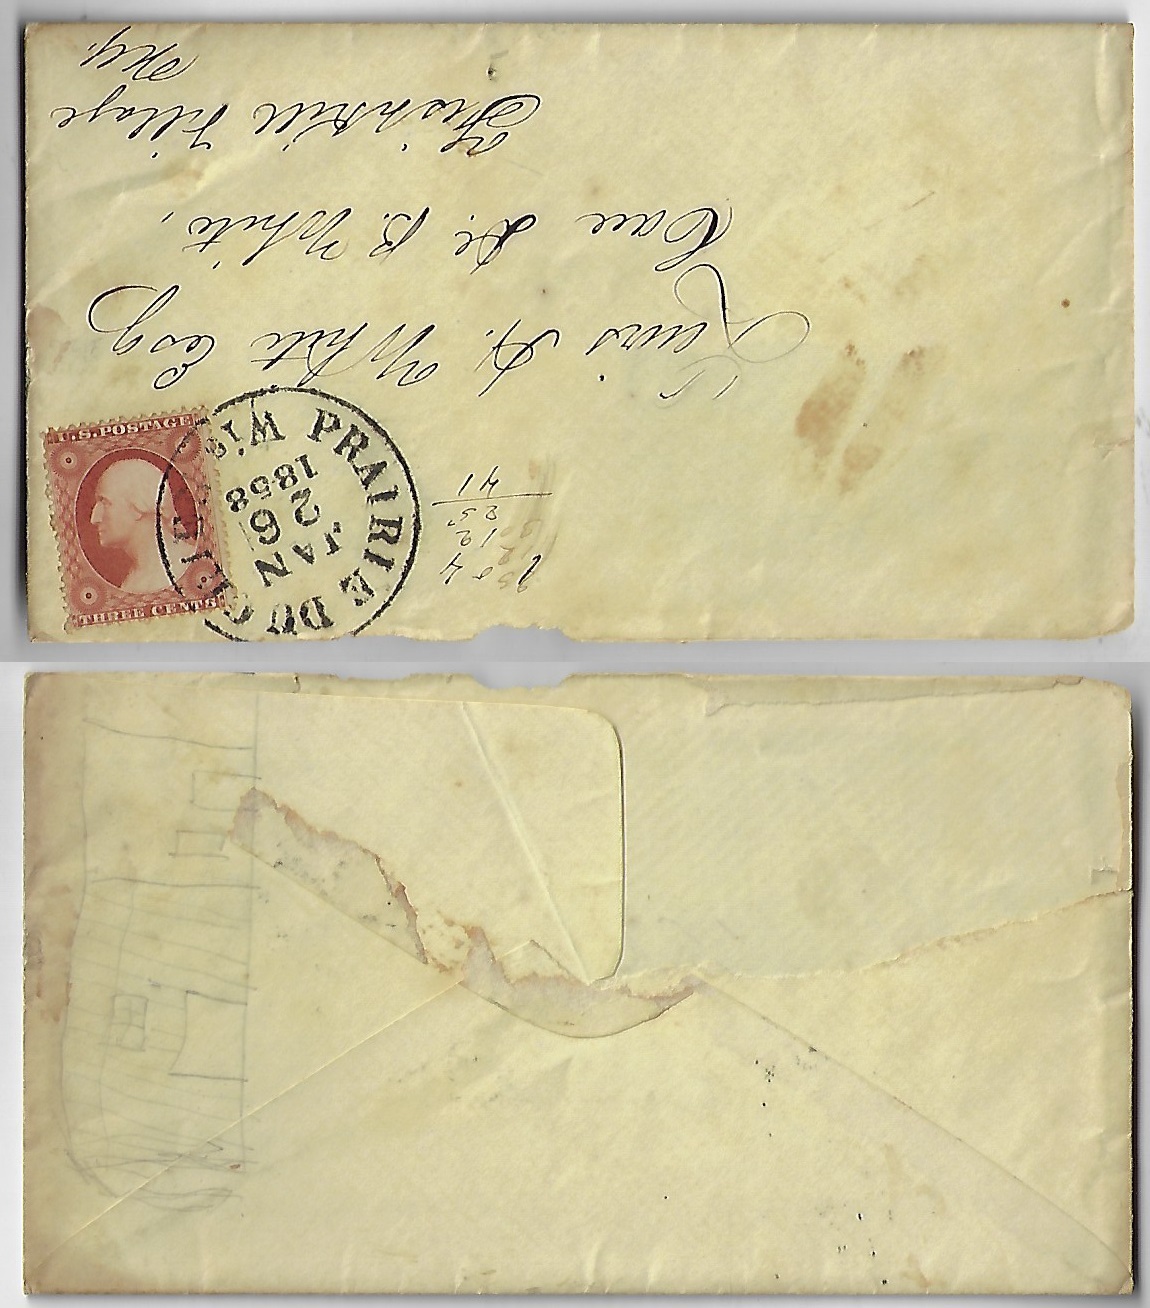 Lewis H. White Esq
Care Dr. B. White,
Fishkill Village
N.Y.
U.S. POSTAGE
THREE CENTS
PRAIRIE DU C IE
WIS
JAN
26
1858
4
12
25
41